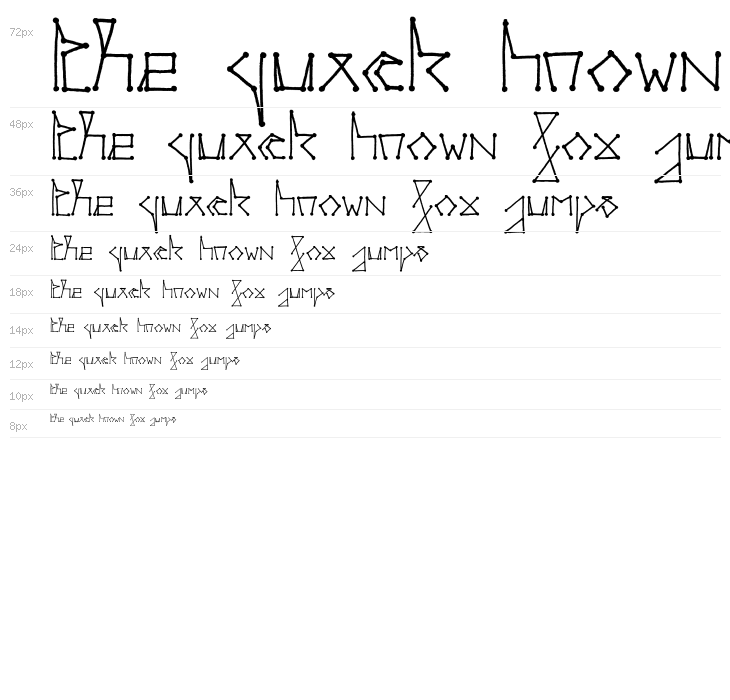 72px the quick brown
48px the quick brown fox jum
36px the quick brown fox jumps
24px the quick brown fox jumps
18px the quick brown fox jumps
14px the quick brown fox jumps
12px the quick brown fox jumps
10px the quick brown fox jumps
8px the quick brown fox jumps